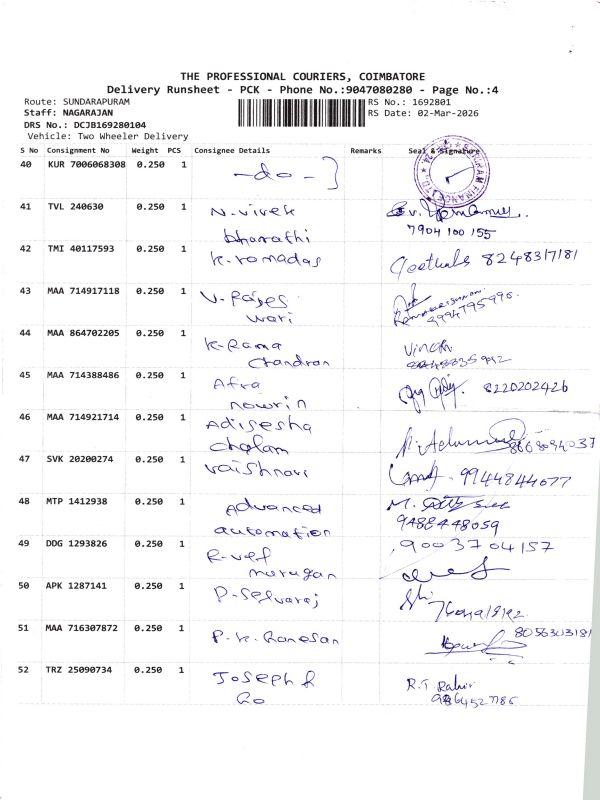 THE PROFESSIONAL COURIERS, COIMBATORE
Delivery Runsheet - PCK - Phone No.:9047080280 - Page No.:4
Route: SUNDARAPURAM
Staff: NAGARAJAN
DRS No.: DCJB169280104
Vehicle: Two Wheeler Delivery
RS No.: 1692801
RS Date: 02-Mar-2026
S No Consignment No Weight PCS Consignee Details Remarks Seal & Signature
40 KUR 7006068308 0.250 1 -do-
41 TVL 240630 0.250 1 N. vivek
bharathi
7904 100 155
42 TMI 40117593 0.250 1 K. ramadas
Geethala 8248317181
43 MAA 714917118 0.250 1 V. Rajes
wari
44 MAA 864702205 0.250 1 K. Rama
Chandran
45 MAA 714388486 0.250 1 Afra
nowrin
8220202426
46 MAA 714921714 0.250 1 Adisesha
chalam
47 SVK 20200274 0.250 1 vaishnavi
9944844677
48 MTP 1412938 0.250 1 Advanced
automation
M.
9488448059
49 DDG 1293826 0.250 1 R. vel
murugan
9003704157
50 APK 1287141 0.250 1 P. Selvaraj
51 MAA 716307872 0.250 1 P. K. Ganesan
8056303181
52 TRZ 25090734 0.250 1 Joseph &
Co
R.T